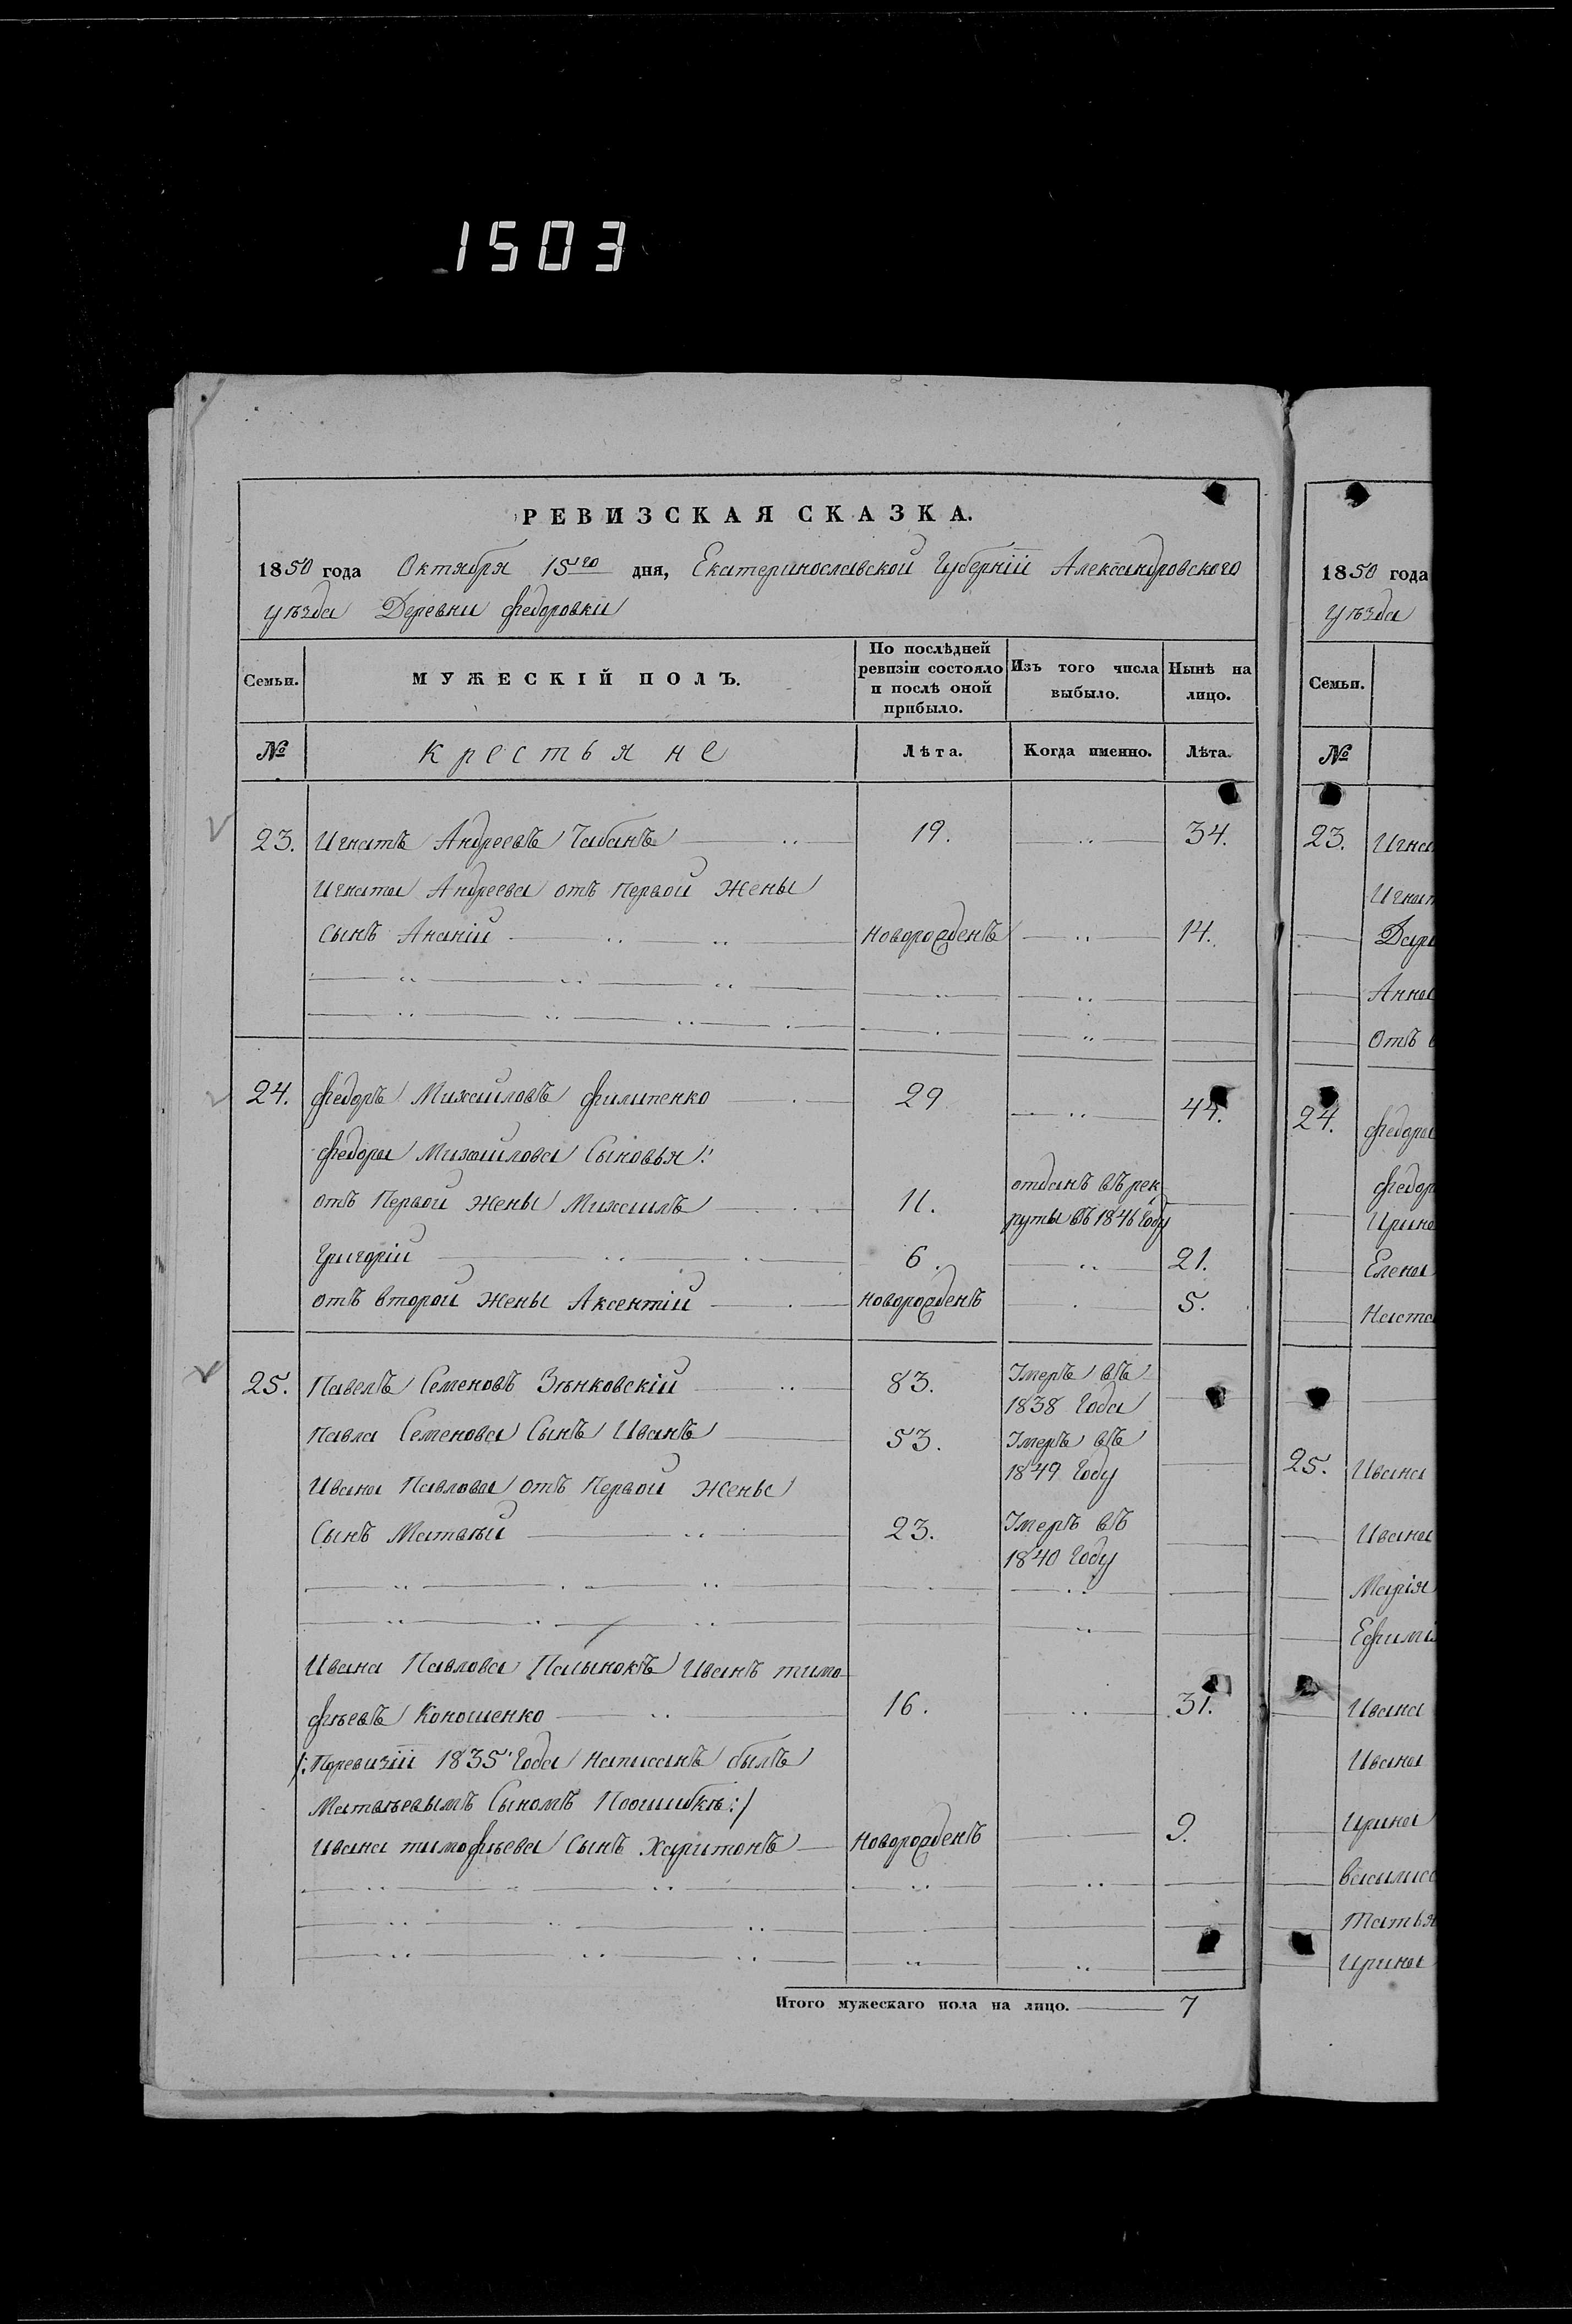 1503
РЕВИЗСКАЯ СКАЗКА.
1850 года Октября 15го дня, Екатеринославской Губерніи Александровского
уѣзда Деревни Федоровки
Семьи.
МУЖЕСКІЙ ПОЛЪ.
По послѣдней ревизіи состояло и послѣ оной прибыло.
Изъ того числа выбыло.
Нынѣ на лицо.
№ Крестьяне Лѣта. Когда именно. Лѣта.
23. Игнатъ Андреевъ Чабанъ 19. 34.
Игната Андреева отъ Первой Жены
Сынъ Ананій новорожденъ 14.
24. Федоръ Михайловъ Филипенко 29 44.
Федора Михайлова Сыновья:
отъ Первой Жены Михаилъ 11. отданъ въ рек
руты въ 1846 Году
Григорій 6. 21.
отъ второй Жены Аксентій новорожденъ 5.
25. Павелъ Семеновъ Зѣнковскій 83. Умеръ въ
1838 Года
Павла Семенова Сынъ Иванъ 53. Умеръ въ
1849 Году
Ивана Павлова отъ Первой Жены
Сынъ Матвѣй 23. Умеръ въ
1840 Году
Ивана Павлова Палынокъ Иванъ тимо
фѣевъ Коношенко 16. 31.
/: Поревизіи 1835 Года написанъ былъ
Матвѣевымъ Сыномъ Поошибкѣ :/
Ивана тимофѣева Сынъ Харитонъ новорожденъ 9.
Итого мужескаго пола на лицо. 7
1850 года
уѣзда
Семьи.
№
23.
Анна
Отъ
24. Федора
Елена
25. Ивана
Ивана
Марія
Ивана
Ивана
Ирина
Ирина